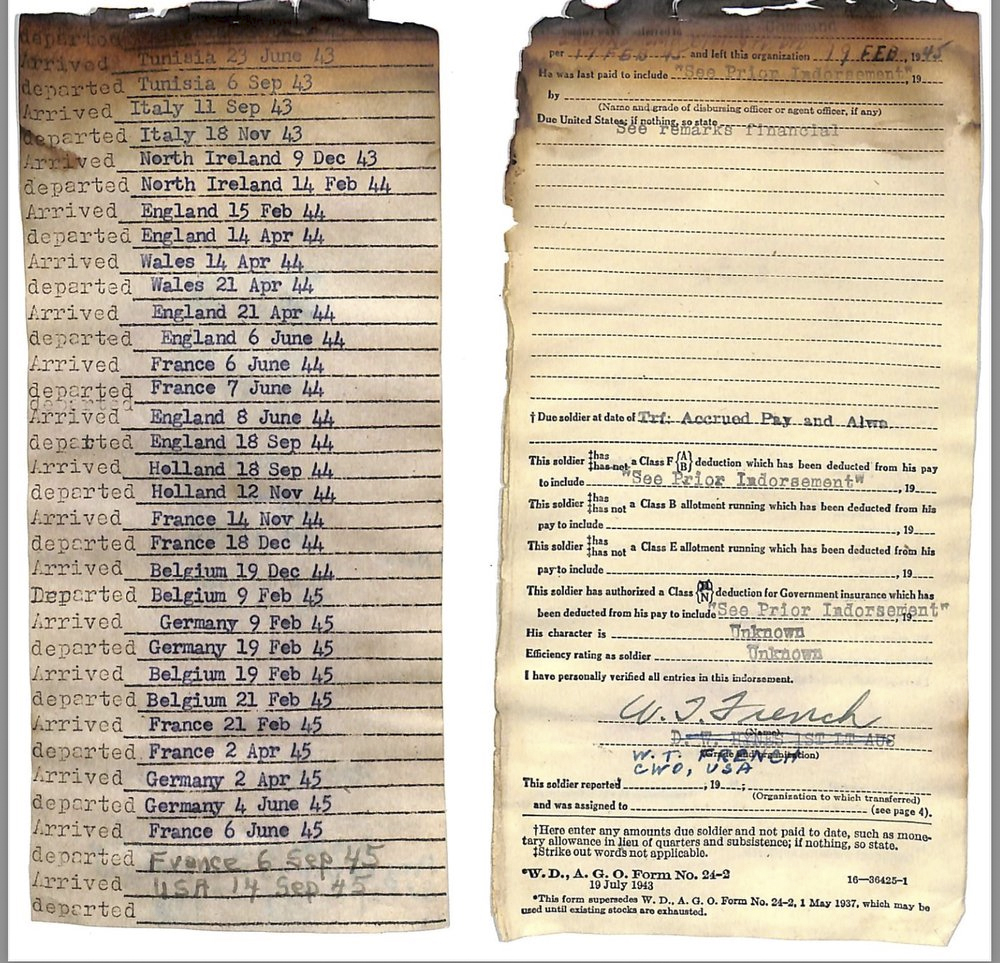 departed
Arrived Tunisia 23 June 43
departed Tunisia 6 Sep 43
Arrived Italy 11 Sep 43
departed Italy 18 Nov 43
Arrived North Ireland 9 Dec 43
departed North Ireland 14 Feb 44
Arrived England 15 Feb 44
departed England 14 Apr 44
Arrived Wales 14 Apr 44
departed Wales 21 Apr 44
Arrived England 21 Apr 44
departed England 6 June 44
Arrived France 6 June 44
departed France 7 June 44
Arrived England 8 June 44
departed England 18 Sep 44
Arrived Holland 18 Sep 44
departed Holland 12 Nov 44
Arrived France 14 Nov 44
departed France 18 Dec 44
Arrived Belgium 19 Dec 44
Departed Belgium 9 Feb 45
Arrived Germany 9 Feb 45
departed Germany 19 Feb 45
Arrived Belgium 19 Feb 45
departed Belgium 21 Feb 45
Arrived France 21 Feb 45
departed France 2 Apr 45
Arrived Germany 2 Apr 45
departed Germany 4 June 45
Arrived France 6 June 45
departed France 6 Sep 45
Arrived USA 14 Sep 45
departed
per 17 FEB 45 and left this organization 19 FEB, 1945
He was last paid to include "See Prior Indorsement", 19
by
(Name and grade of disbursing officer or agent officer, if any)
Due United States; if nothing, so state
See remarks financial
† Due soldier at date of Trf: Accrued Pay and Alws
This soldier ‡has ‡has not a Class F {A B} deduction which has been deducted from his pay
to include "See Prior Indorsement", 19
This soldier ‡has ‡has not a Class B allotment running which has been deducted from his
pay to include , 19
This soldier ‡has ‡has not a Class E allotment running which has been deducted from his
pay to include , 19
This soldier has authorized a Class {N} deduction for Government insurance which has
been deducted from his pay to include "See Prior Indorsement", 19
His character is Unknown
Efficiency rating as soldier Unknown
I have personally verified all entries in this indorsement.
W. T. French
(Name)
1ST LT AUS
(Grade and organization)
W. T. FRENCH
CWO, USA
This soldier reported , 19 ,
(Organization to which transferred)
and was assigned to (see page 4).
†Here enter any amounts due soldier and not paid to date, such as mone-
tary allowance in lieu of quarters and subsistence; if nothing, so state.
‡Strike out words not applicable.
*W. D., A. G. O. Form No. 24-2
19 July 1943
16—36425-1
*This form supersedes W. D., A. G. O. Form No. 24-2, 1 May 1937, which may be
used until existing stocks are exhausted.